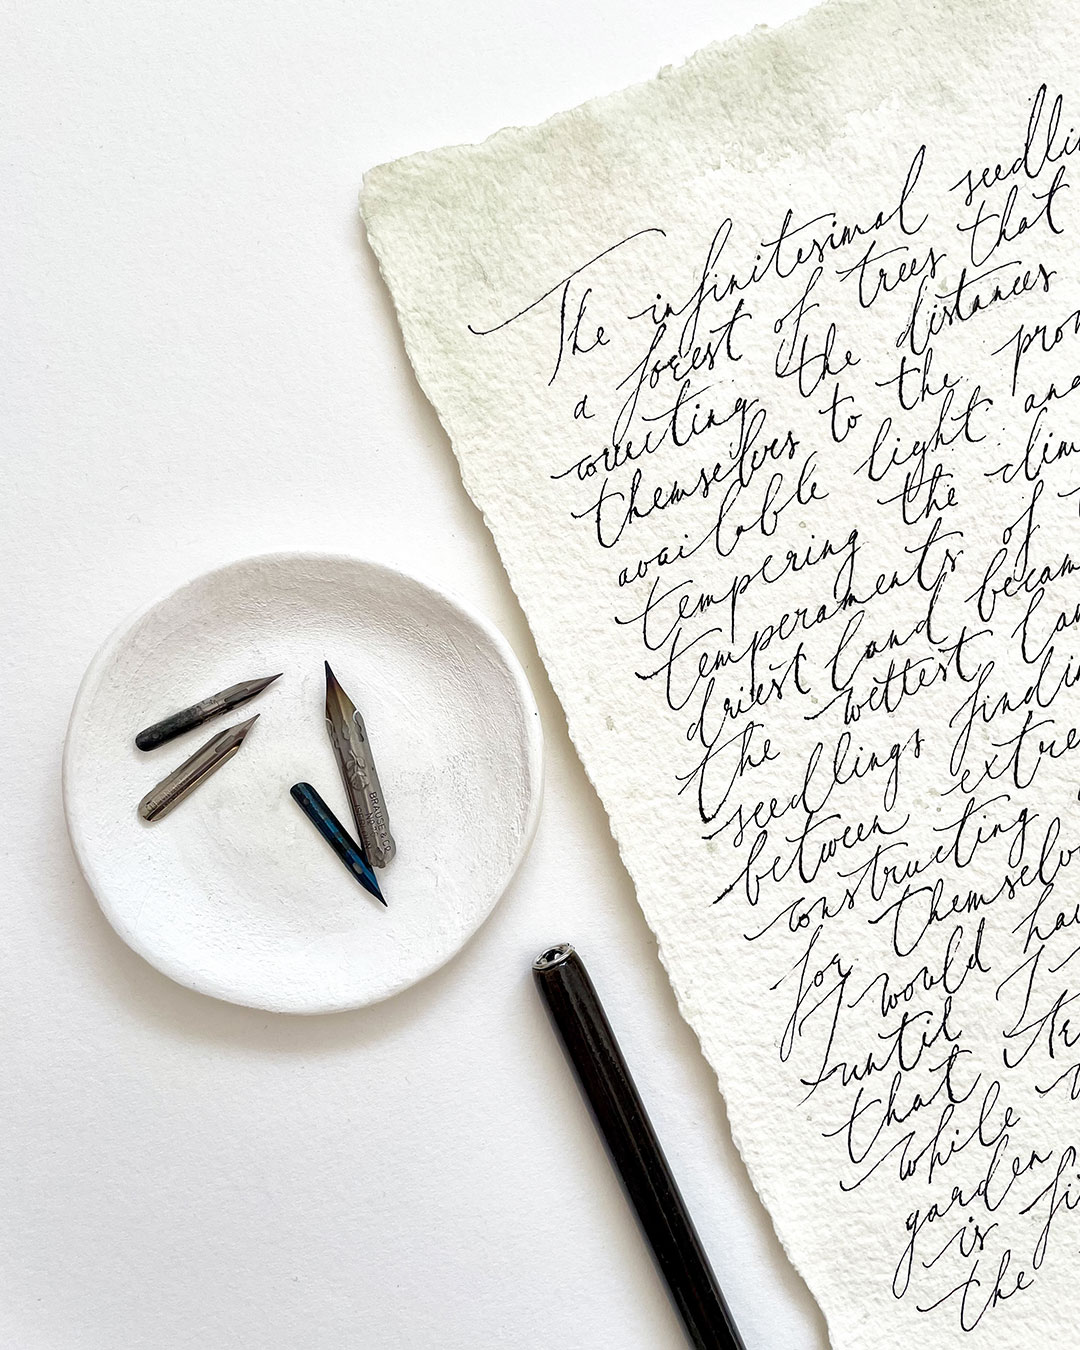 The infinitesimal seedli
a forest of trees that
correcting the distances
themselves to the pro
available light and
tempering the clim
temperaments of
driest land becam
the wettest lan
seedlings findi
between extre
constructing
for themselv
I would hav
until I
that
while
garden
is fi
the
BRAUSE & CO.